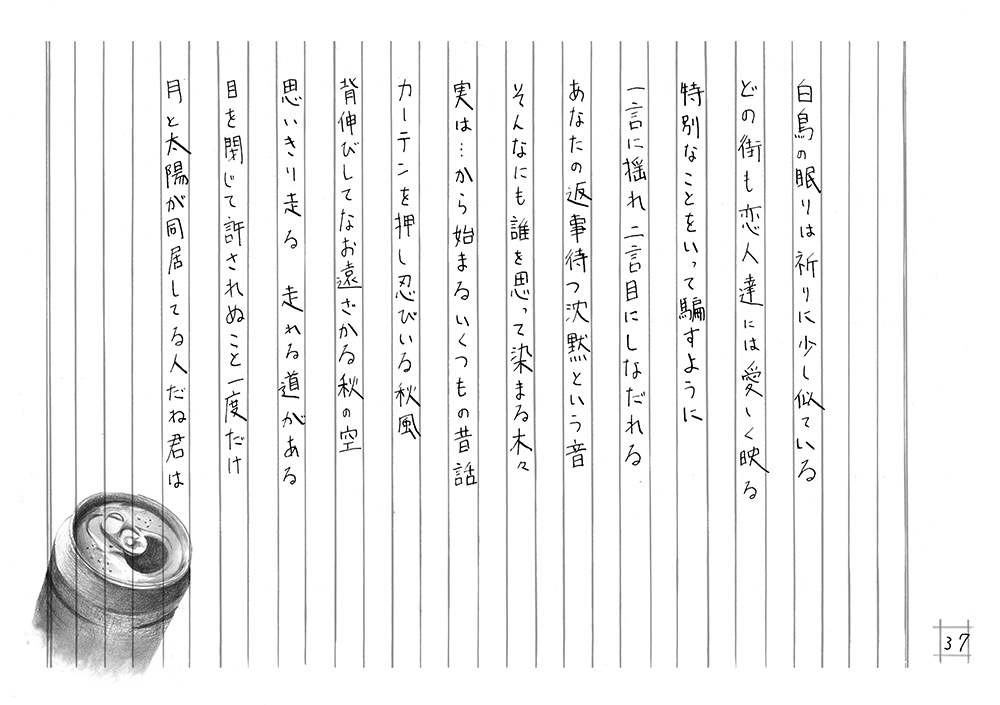 白鳥の眠りは祈りに少し似ている
どの街も恋人達には愛しく映る
特別なことをいって騙すように
一言に揺れ二言目にしなだれる
あなたの返事待つ沈黙という音
そんなにも誰を思って染まる木々
実は…から始まるいくつもの昔話
カーテンを押し忍びいる秋風
背伸びしてなお遠ざかる秋の空
思いきり走る 走れる道がある
目を閉じて許されぬこと一度だけ
月と太陽が同居してる人だね君は
37